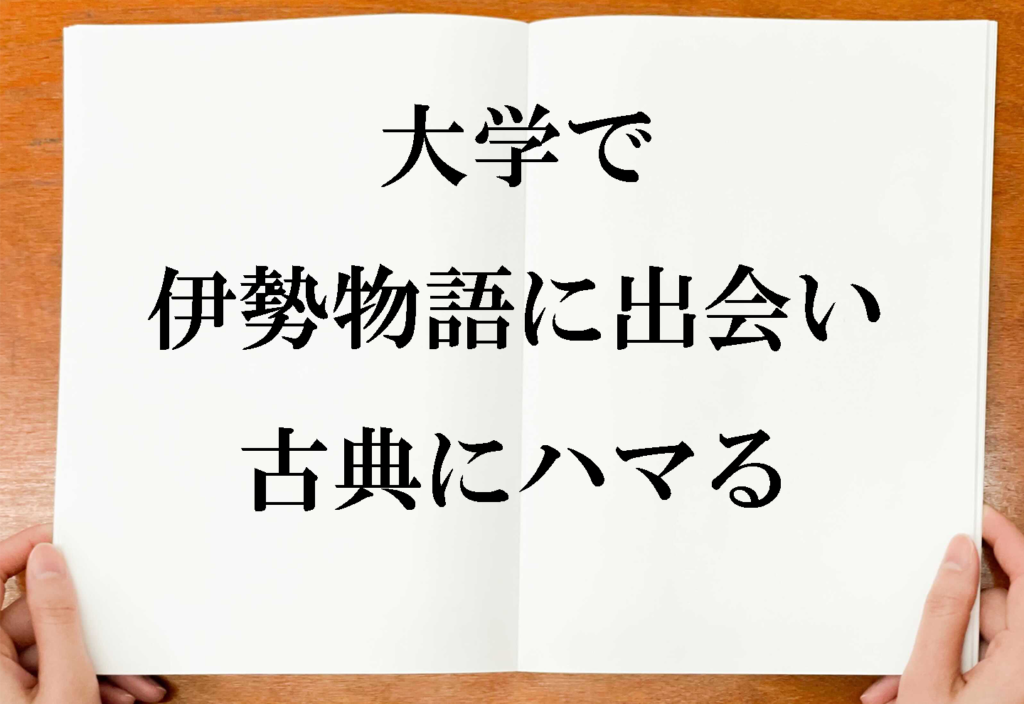 大学で
伊勢物語に出会い
古典にハマる